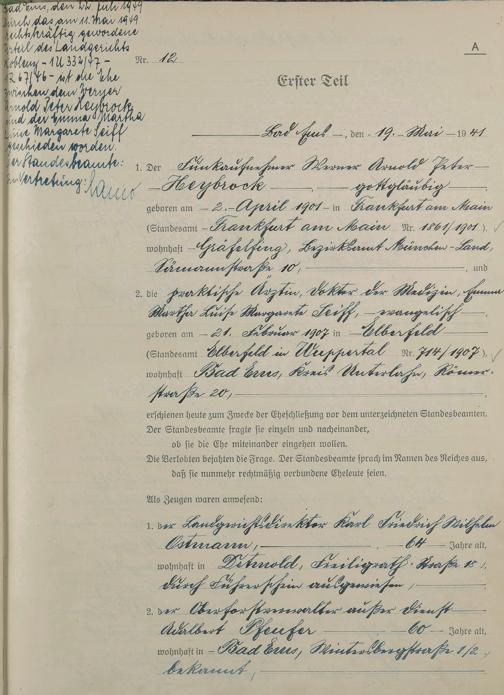 Bad Ems, den 22. Juli 1949
Durch das am 11. Mai 1949
rechtskräftig gewordene
Urteil des Landgerichts
Koblenz - 1 U 332/47 -
R 67/46 - ist die Ehe
zwischen dem Werner
Arnold Peter Heybrock
und der Emma Martha
Luise Margarete Seiff
geschieden worden.
Der Standesbeamte:
In Vertretung:
A
Nr. 12
Erster Teil
Bad Ems, den 19. Mai 1941
1. Der Funkaufnehmer Werner Arnold Peter
Heybrock, gottgläubig
geboren am 2. April 1901 in Frankfurt am Main
(Standesamt Frankfurt am Main Nr. 1861/1901),
wohnhaft Gräfelfing, Bezirksamt München-Land,
10, und
2. die praktische Ärztin, Doktor der Medizin, Emma
Martha Luise Margarete Seiff, evangelisch
geboren am 21. Februar 1907 in Elberfeld
(Standesamt Elberfeld in Wuppertal Nr. 714/1907),
wohnhaft Bad Ems, Kreis Unterlahn, Römer-
straße 20,
erschienen heute zum Zwecke der Eheschließung vor dem unterzeichneten Standesbeamten.
Der Standesbeamte fragte sie einzeln und nacheinander,
ob sie die Ehe miteinander eingehen wollen.
Die Verlobten bejahten die Frage. Der Standesbeamte sprach im Namen des Reiches aus,
daß sie nunmehr rechtmäßig verbundene Eheleute seien.
Als Zeugen waren anwesend:
1. der Landgerichtsdirektor Karl Friedrich Wilhelm
Ostmann, 64 Jahre alt,
wohnhaft in Detmold, Freiligrath-Straße
durch Führerschein ausgewiesen,
2. der Oberforstverwalter außer Dienst
Adalbert Pfeufer 60 Jahre alt,
wohnhaft in Bad Ems, Wintersbergstraße 1/2,
bekannt,